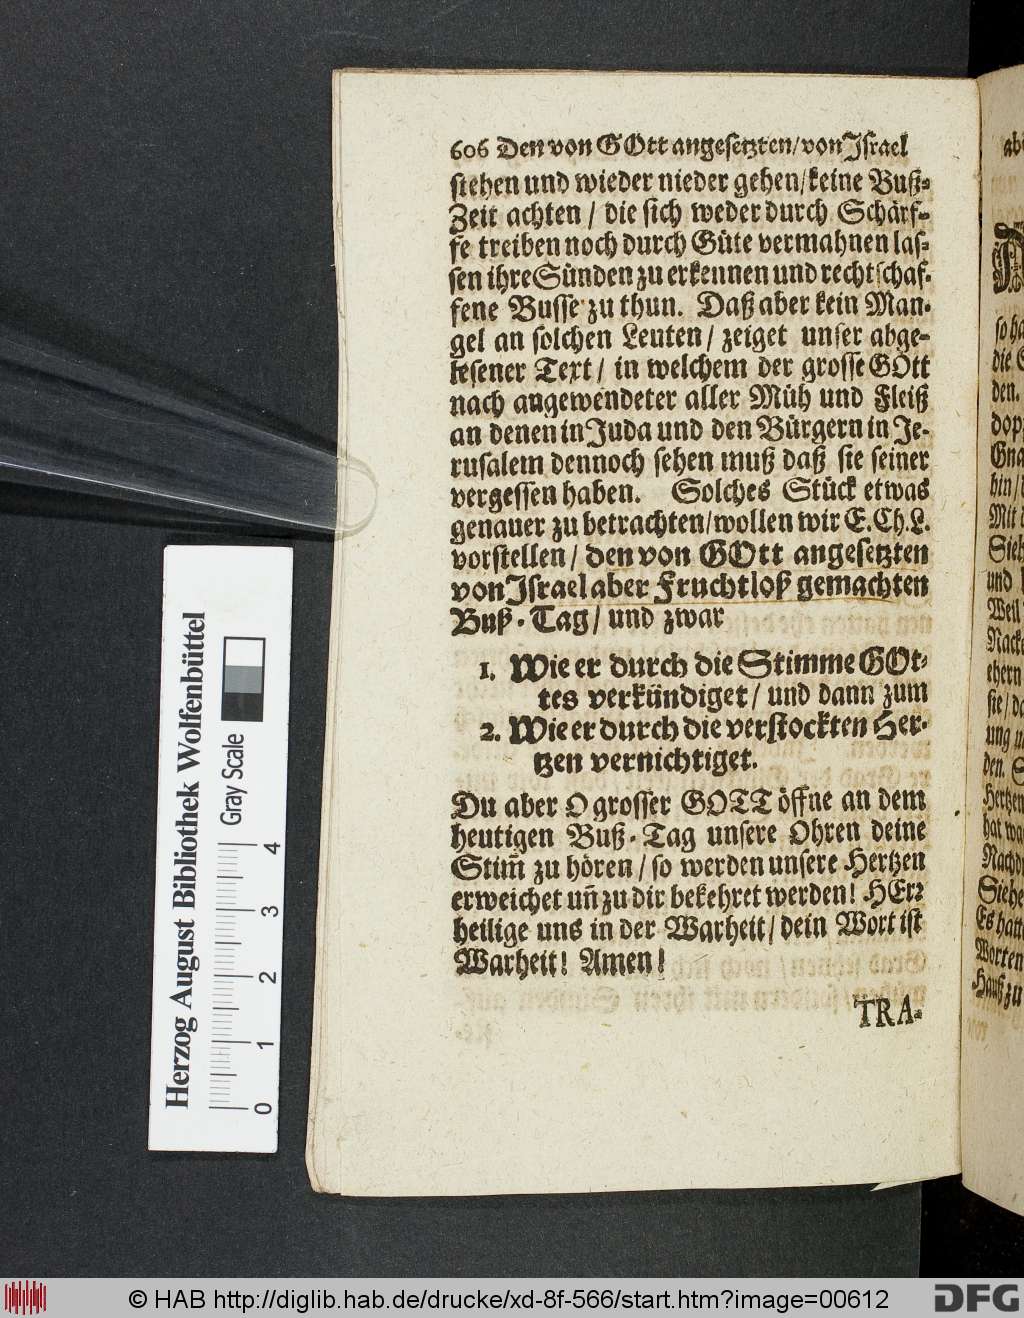 606 Den von GOtt angesetzten/von Israel
stehen und wieder nieder gehen/keine Buß-
Zeit achten / die sich weder durch Schärf-
fe treiben noch durch Güte vermahnen las-
sen ihre Sünden zu erkennen und rechtschaf-
fene Busse zu thun. Daß aber kein Man-
gel an solchen Leuten / zeiget unser abge-
lesener Text / in welchem der grosse GOtt
nach angewendeter aller Müh und Fleiß
an denen in Juda und den Bürgern in Je-
rusalem dennoch sehen muß daß sie seiner
vergessen haben. Solches Stück etwas
genauer zu betrachten/wollen wir E. Ch. L.
vorstellen / den von GOtt angesetzten
von Israel aber Fruchtloß gemachten
Buß-Tag / und zwar
1. Wie er durch die Stimme GOt-
tes verkündiget / und dann zum
2. Wie er durch die verstockten Her-
tzen vernichtiget.
Du aber O grosser GOTT öffne an dem
heutigen Buß-Tag unsere Ohren deine
Stim̃ zu hören / so werden unsere Hertzen
erweichet uñ zu dir bekehret werden! HErr
heilige uns in der Warheit / dein Wort ist
Warheit! Amen!
TRA-
so
die
den.
hin/
Mit
Sieh
und
Weil
Nack
ehern
sie/
ung
den.
Hertzen
hat
Siehe
Es hatt
Worten
Hauß zu
Herzog August Bibliothek Wolfenbüttel
Gray Scale
0 1 2 3 4
© HAB http://diglib.hab.de/drucke/xd-8f-566/start.htm?image=00612
DFG